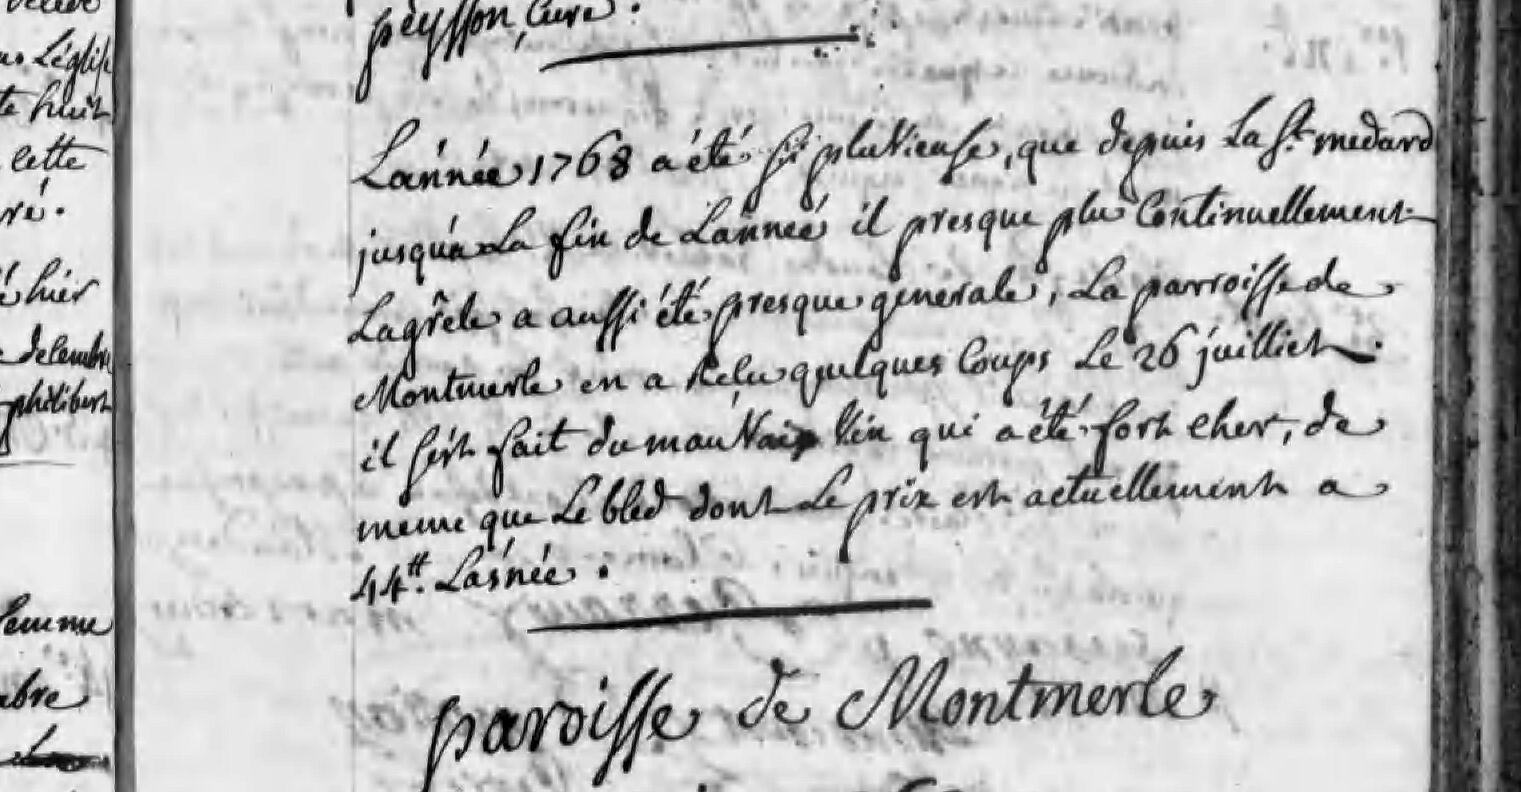 us L'églis
te huit
cette
ré.
é hier
decembre
philibert
femme
mbre
peysson, Curé.
L'année 1768 a été si pluvieuse, que depuis La St. medard
jusqu'a La fin de L'année il presque plu continuellement
La grêle a aussi été presque generale, La parroisse de
Montmerle en a Reçu quelques coups Le 26 juilliet.
il s'est fait du mauvais vin qui a été fort cher, de
meme que Le bled dont Le prix est actuellement a
44 ₶. L'asnée.
paroisse de Montmerle